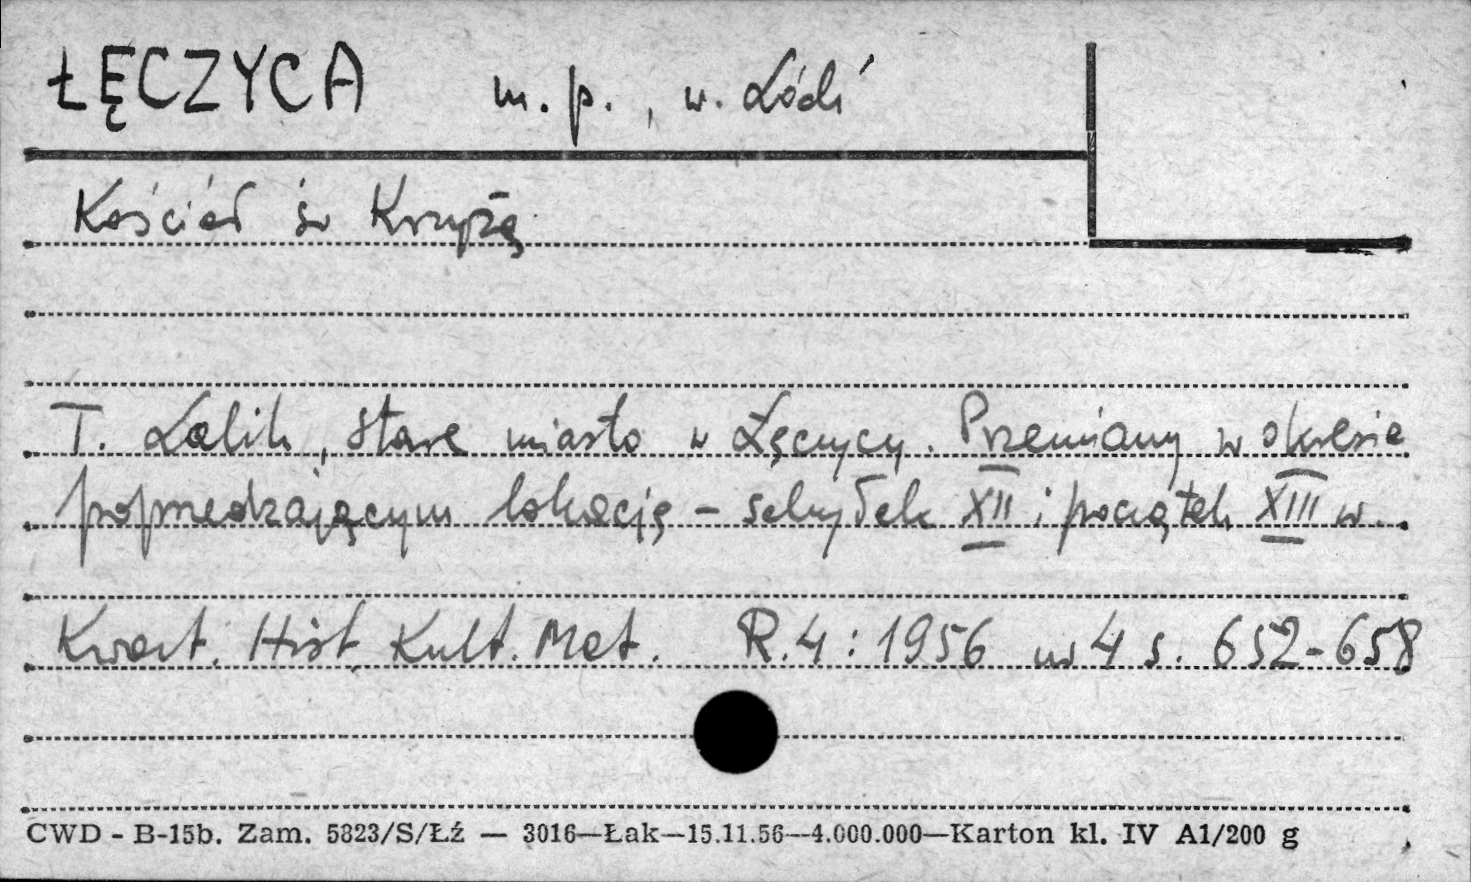 ŁĘCZYCA m. p., w. Łódź
Kościół św Krzyża
T. Lalik, Stare miasto w Łęczycy. Przemiany w okresie
poprzedzającym lokację - schyłek XII i początek XIII w.
Kwart. Hist. Kult. Mat. R. 4 : 1956 nr 4 s. 652-658
CWD - B-15b. Zam. 5823/S/Łź — 3016—Łak—15.11.56—4.000.000—Karton kl. IV A1/200 g